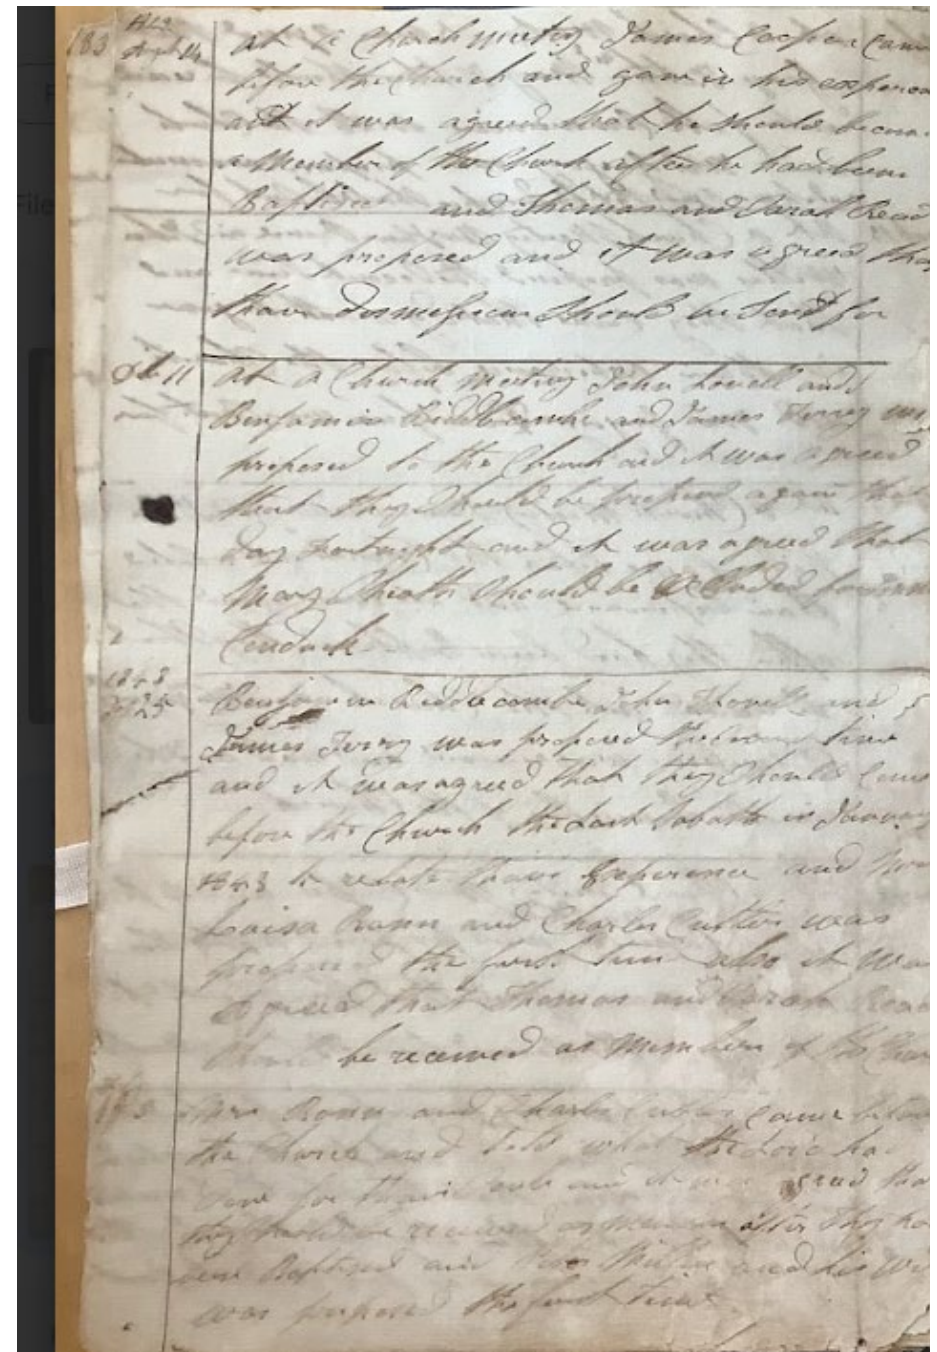 183
at a Church meeting James Cooper Came
before the Church and gave in his experience
and it was agreed that he should become
a Member of the Church after he had been
Baptised and Thomas and Sarah Read
was proposed and it was agreed that
thare Dismission Should be Sent for
11 at a Church meeting John Lovell and
Benjamin Riddlecombe and James Terrey was
proposed to the Church and it was agreed
that they Should be proposed again that
day fortnight and it was agreed that
Mary Cheath Should be Excluded for
Conduck
1843
25 Benjamin Riddlecombe John and
James Terrey was proposed the time
and it was agreed that they Should Come
before the Church the Last Sabath in January
1843 to relate thare Experience and
Louisa and Charles was
proposed the first time also it was
agreed that Thomas and Sarah Read
should be received as Members of this Church
Mrs and Charles came before
the Church and told what the Lord had
done for thair and it was agreed that
they should be received as after they had
been Baptised and and his wife
was proposed the first time